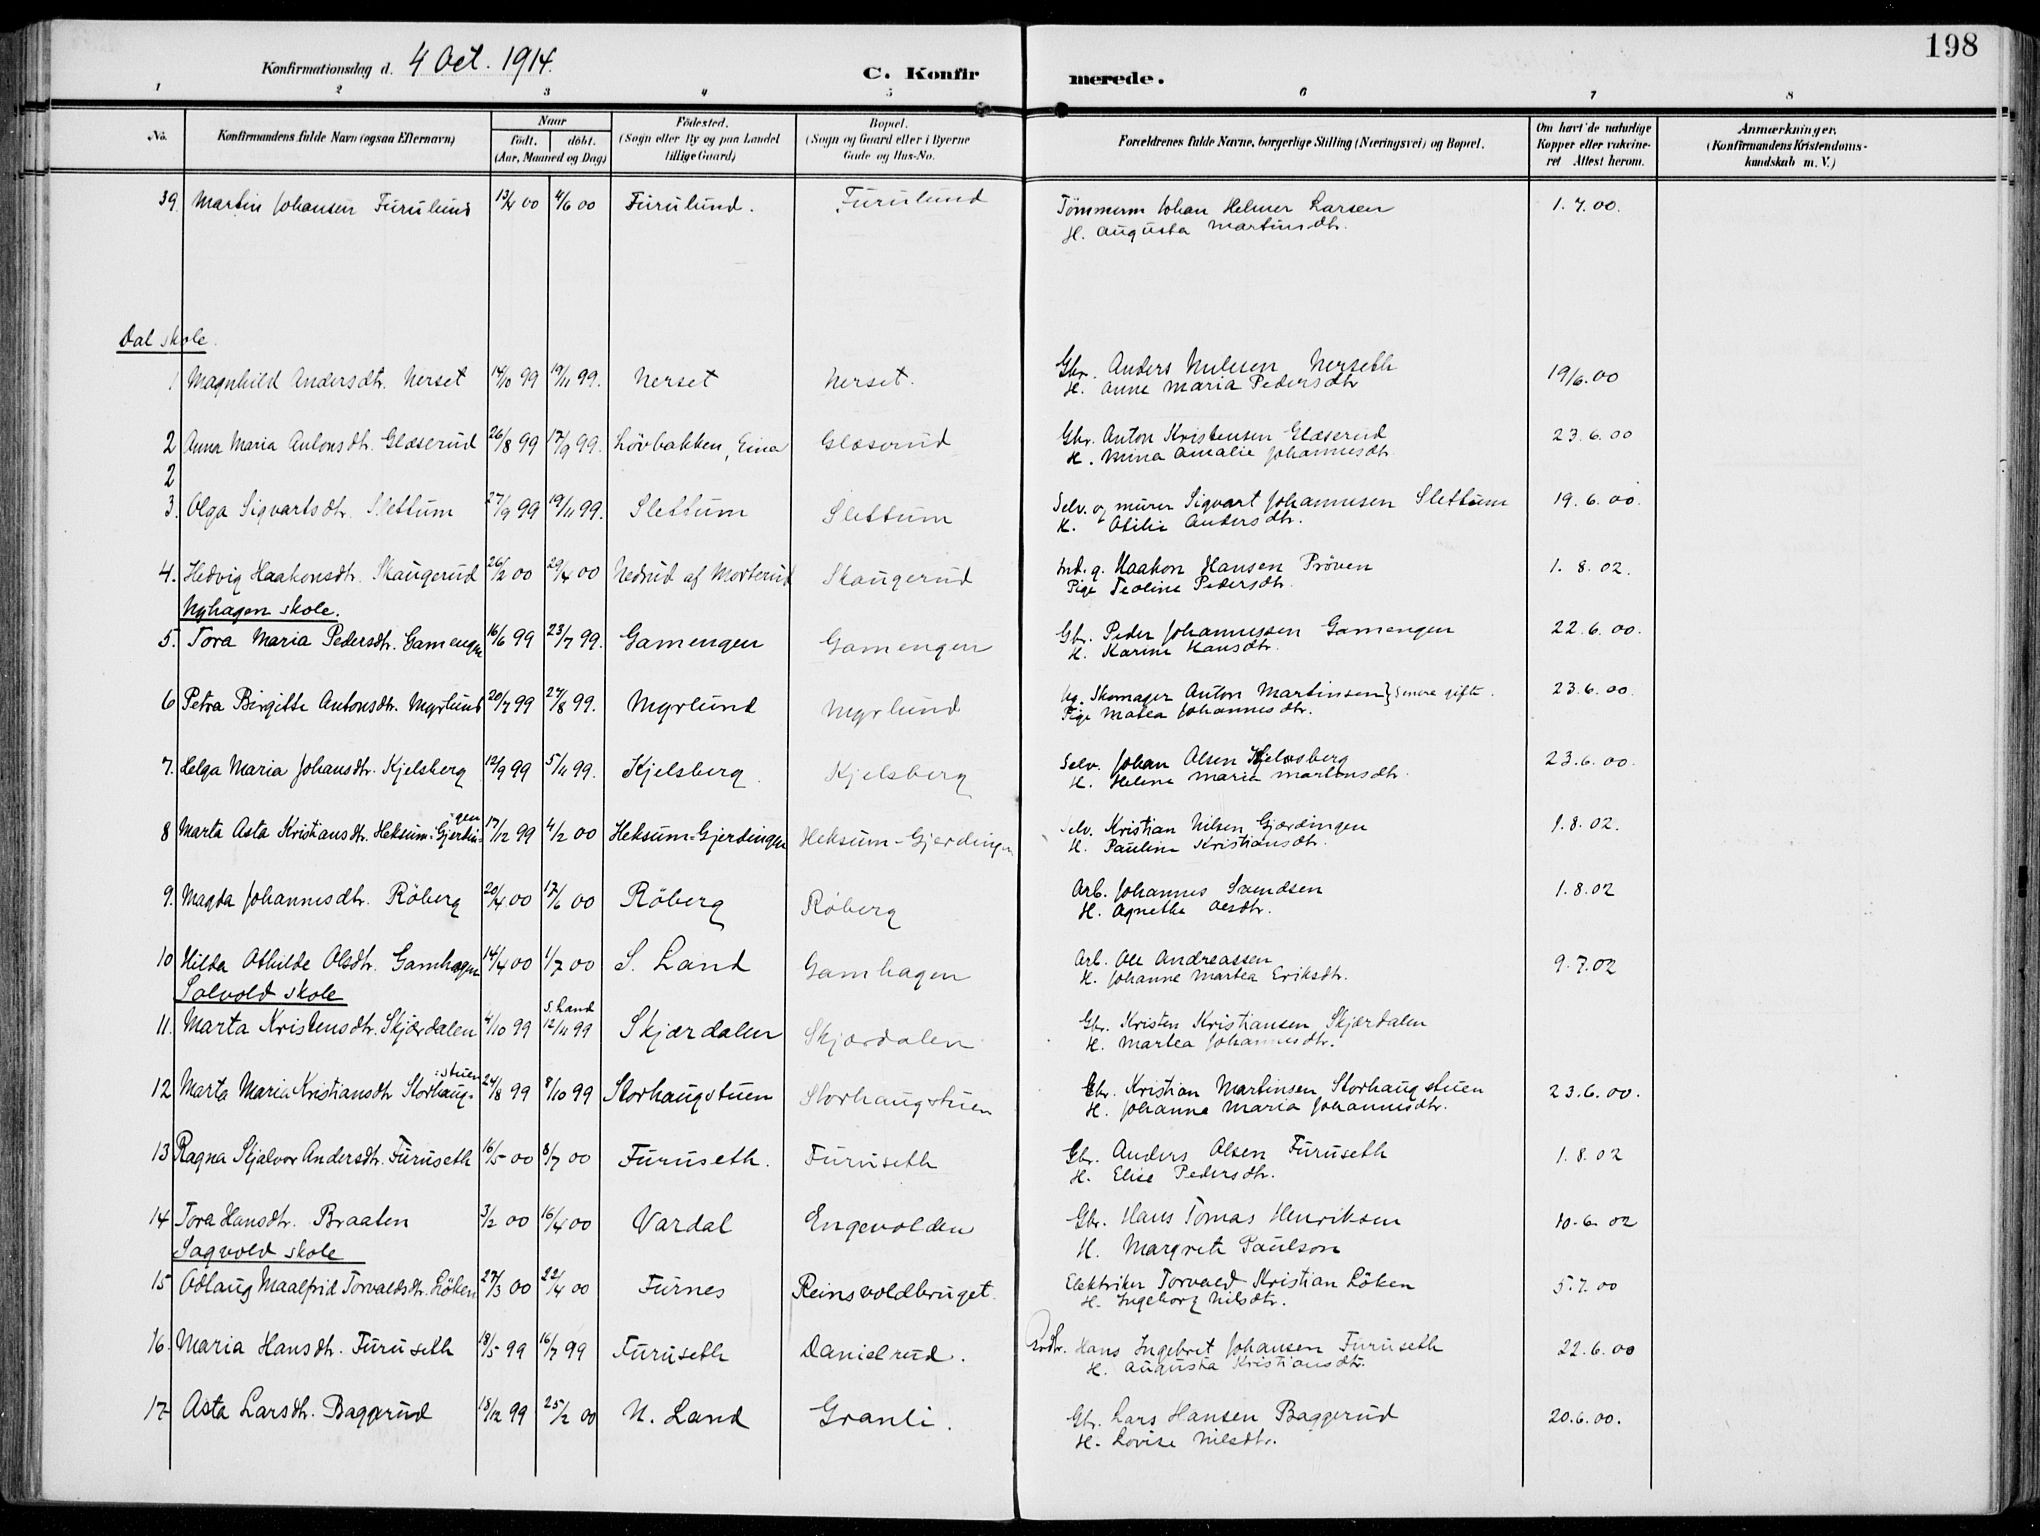 198
Konfirmationsdag d. 4 Oct. 1914.
C. Konfir merede.
1 2 3 4 5 6 7 8
No. Konfirmandens fulde Navn (ogsaa Efternavn) Naar födt. döbt. (Aar, Maaned og Dag) Födested. (Sogn eller By og paa Landet tillige Gaard) Bopæl. (Sogn og Gaard eller i Byerne Gade og Hus-No. Forældrenes fulde Navne, borgerlige Stilling (Næringsvei) og Bopæl. Om havt de naturlige Kopper eller vakcineret Attest herom. Anmærkninger. (Konfirmandens Kristendomskundskab m. V.)
39 Martin Johansen Furulund 13/4 00 4/6 00 Furulund. Furulund Tömmerm Johan Helmer Larsen 1.7.00.
H. Augusta Martinsdtr.
Dal skole.
1 Magnhild Andersdtr. Nerset 14/10 99 19/11 99. Nerset Nerset. Gbr. Anders Nilesen Nerseth 19/6.00
H. Anne Maria Pedersdtr
2 Anna Maria Antonsdtr. Glæserud 26/8 99 17/9 99. Lövbakken, Eina Glæserud Gbr. Anton Kristensen Glæserud 23.6.00
H. Mina Amalie Johannesdtr
2
3. Olga Sigvartsdtr. Slettum 27/9 99 19/11 99. Slettum Slettum Selv. og murer Sigvart Johannesen Slettum 19.6.00.
H. Otilie Andersdtr.
4. Hedvig Haakonsdtr. Skaugerud 26/2 00 29/4 00 Nedrud af Morterud Skaugerud Haakon Hansen Pröven 1.8.02.
Pige Teoline Pedersdtr.
Nyhagen skole.
5. Tora Maria Pedersdtr. Gamengen 16/6 99 23/7 99. Gamengen Gamengen Gbr. Peder Johannessen Gamengen 22.6.00.
H. Karine Hansdtr.
6 Petra Birgitte Antonsdtr. Myrlund 20/7 99 27/8 99. Myrlund Myrlund Ug. Skomager Anton Martinsen} senere gifte. 23.6.00.
Pige Matea Johannesdtr.
7. Helga Maria Johansdtr. Kjelsberg 12/9 99 5/11 99. Kjelsberg. Kjelsberg Selv. Johan Olsen Kjelsberg 23.6.00.
H. Helene Maria Martinsdtr.
8 Marta Asta Kristiansdtr. Heksum-Gjerdingen 17/12 99 4/2 00 Heksum-Gjerdingen Heksum-Gjerdingen Selv. Kristian Nilsen Gjærdingen 1.8.02.
H. Pauline Kristiansdtr.
9. Magda Johannesdtr. Röberg 20/4 00 17/6 00 Röberg Röberg Arb. Johannes Svendsen 1.8.02
H. Agnethe Olsdtr.
10 Hilda Othilde Olsdtr. Gamhagen 14/4 00 1/7 00 S. Land Gamhagen Arb. Ole Andreassen 9.7.02
H. Johanne Martea Eriksdtr.
Solvold skole
11. Marta Kristensdtr. Skjærdalen 4/10 99 S. Land 12/11 99 Skjærdalen Skjærdalen Gbr. Kristen Kristiansen Skjærdalen
H. Martea Johannesdtr.
12 Marta Maria Kristiansdtr Storhaug-stuen 24/8 99 8/10 99 Storhaugstuen Storhaugstuen Gbr. Kristian Martinsen Storhaugstuen 23.6.00.
H. Johanne Maria Johannesdtr.
13 Ragna Skjalvor Andersdtr. Furuseth 16/5 00 8/7 00 Furuseth. Furuseth Gbr. Anders Olsen Furuseth 1.8.02
H. Elise Pedersdtr.
14 Tora Hansdtr. Braaten 3/2 00 16/4 00 Vardal Engevolden Gbr. Hans Tomas Henriksen 10.6.02
H. Margrete Paulson
Sagvold skole
15 Odlaug Maalfrid Torvaldsdtr. Löken 27/3 00 22/4 00 Furnes Reinsvoldbruget. Elektriker Torvald Kristian Löken 5.7.00
H. Ingeborg Nilsdtr.
16. Maria Hansdtr. Furuseth 18/5 99 16/7 99 Furuseth Danielrud. Hans Ingebret Johansen Furuseth 22.6.00
H. Augusta Kristiansdtr.
17 Asta Larsdtr. Baggerud 18/12 99 25/2 00 N. Land Granli. Gbr. Lars Hansen Baggerud 20.6.00.
H. Lovise Nilsdtr.